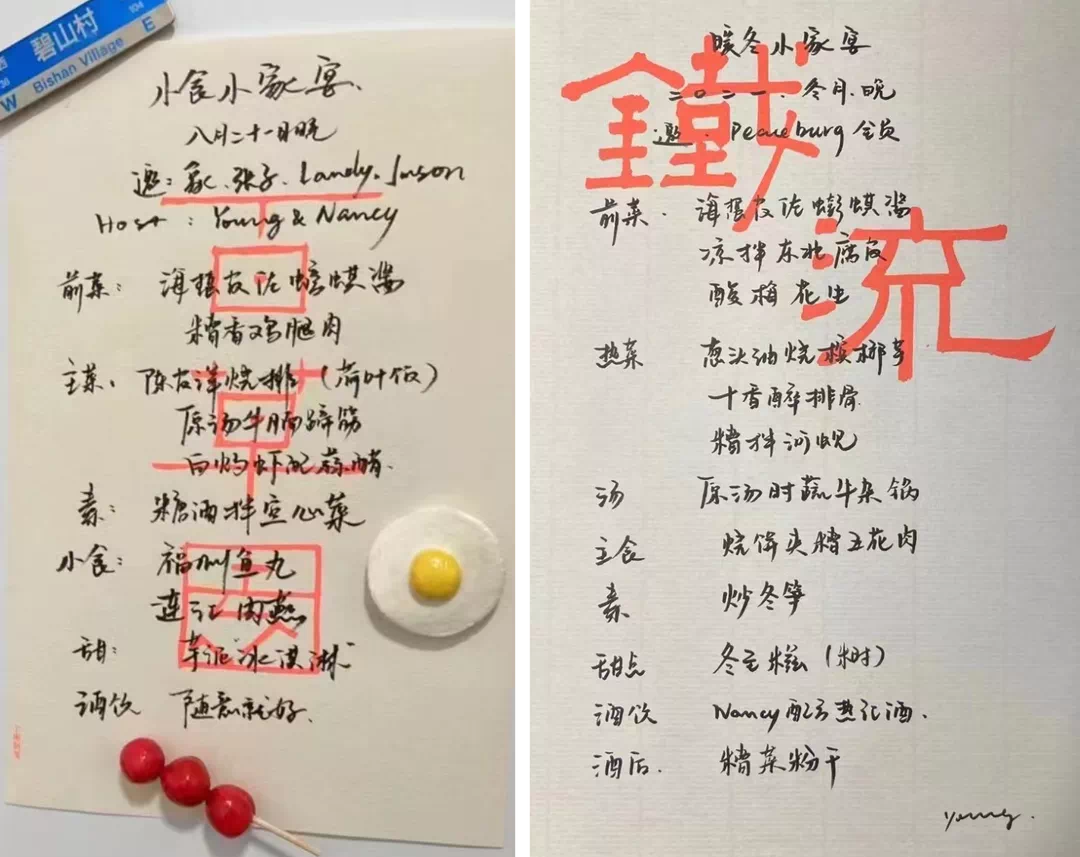 碧山村
Bishan Village
W
E
小食小家宴.
八月二十一日晚
邀: 张子. Landy. Juson
Host : Young & Nancy
前菜: 海蜇皮佐蟛蜞酱
糟香鸡腿肉
主菜: 陈皮洋烧排 (荷叶饭)
原汤牛腩蹄筋
白灼虾配蒜蓉
素: 糖酒拌空心菜
小食: 福州鱼丸
连江肉燕
甜: 芋泥冰淇淋
酒饮 随意就好.
暖冬小家宴
二〇二一. 冬月.晚
邀. Peaceburg 全员
鐵流
前菜. 海蜇皮佐蟛蜞酱
凉拌东北腐皮
酸梅花生
热菜 葱头油烧槟榔芋
十香醉排骨
糟拌河蚬
汤 原汤时蔬牛杂锅
主食 烧饼夹糟五花肉
素 炒冬笋
甜点 冬至糍 (米时)
酒饮 Nancy配方热红酒.
酒后. 糟菜粉干
Young.